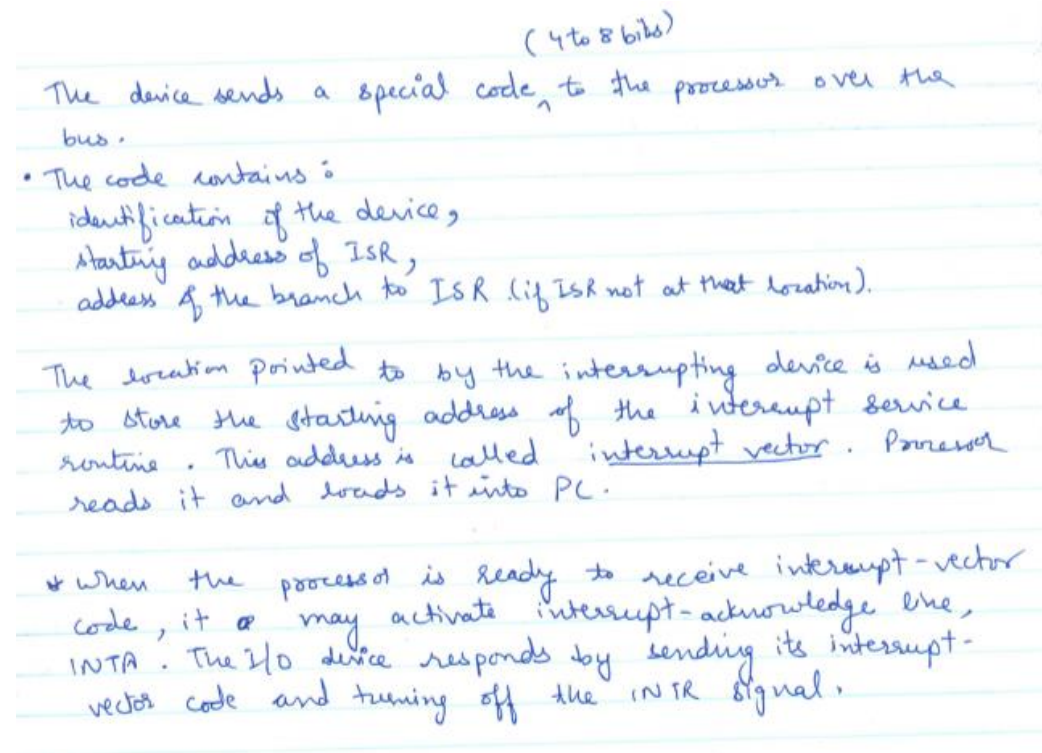 (4 to 8 bits)
The device sends a special code ^ to the processor over the
bus.
• The code contains :
identification of the device,
starting address of ISR,
address of the branch to ISR (if ISR not at that location).
The location pointed to by the interrupting device is used
to store the starting address of the interrupt service
routine. This address is called interrupt vector. Processor
reads it and loads it into PC.
* When the processor is ready to receive interrupt-vector
code, it may activate interrupt-acknowledge line,
INTA. The I/O device responds by sending its interrupt-
vector code and turning off the INTR signal.